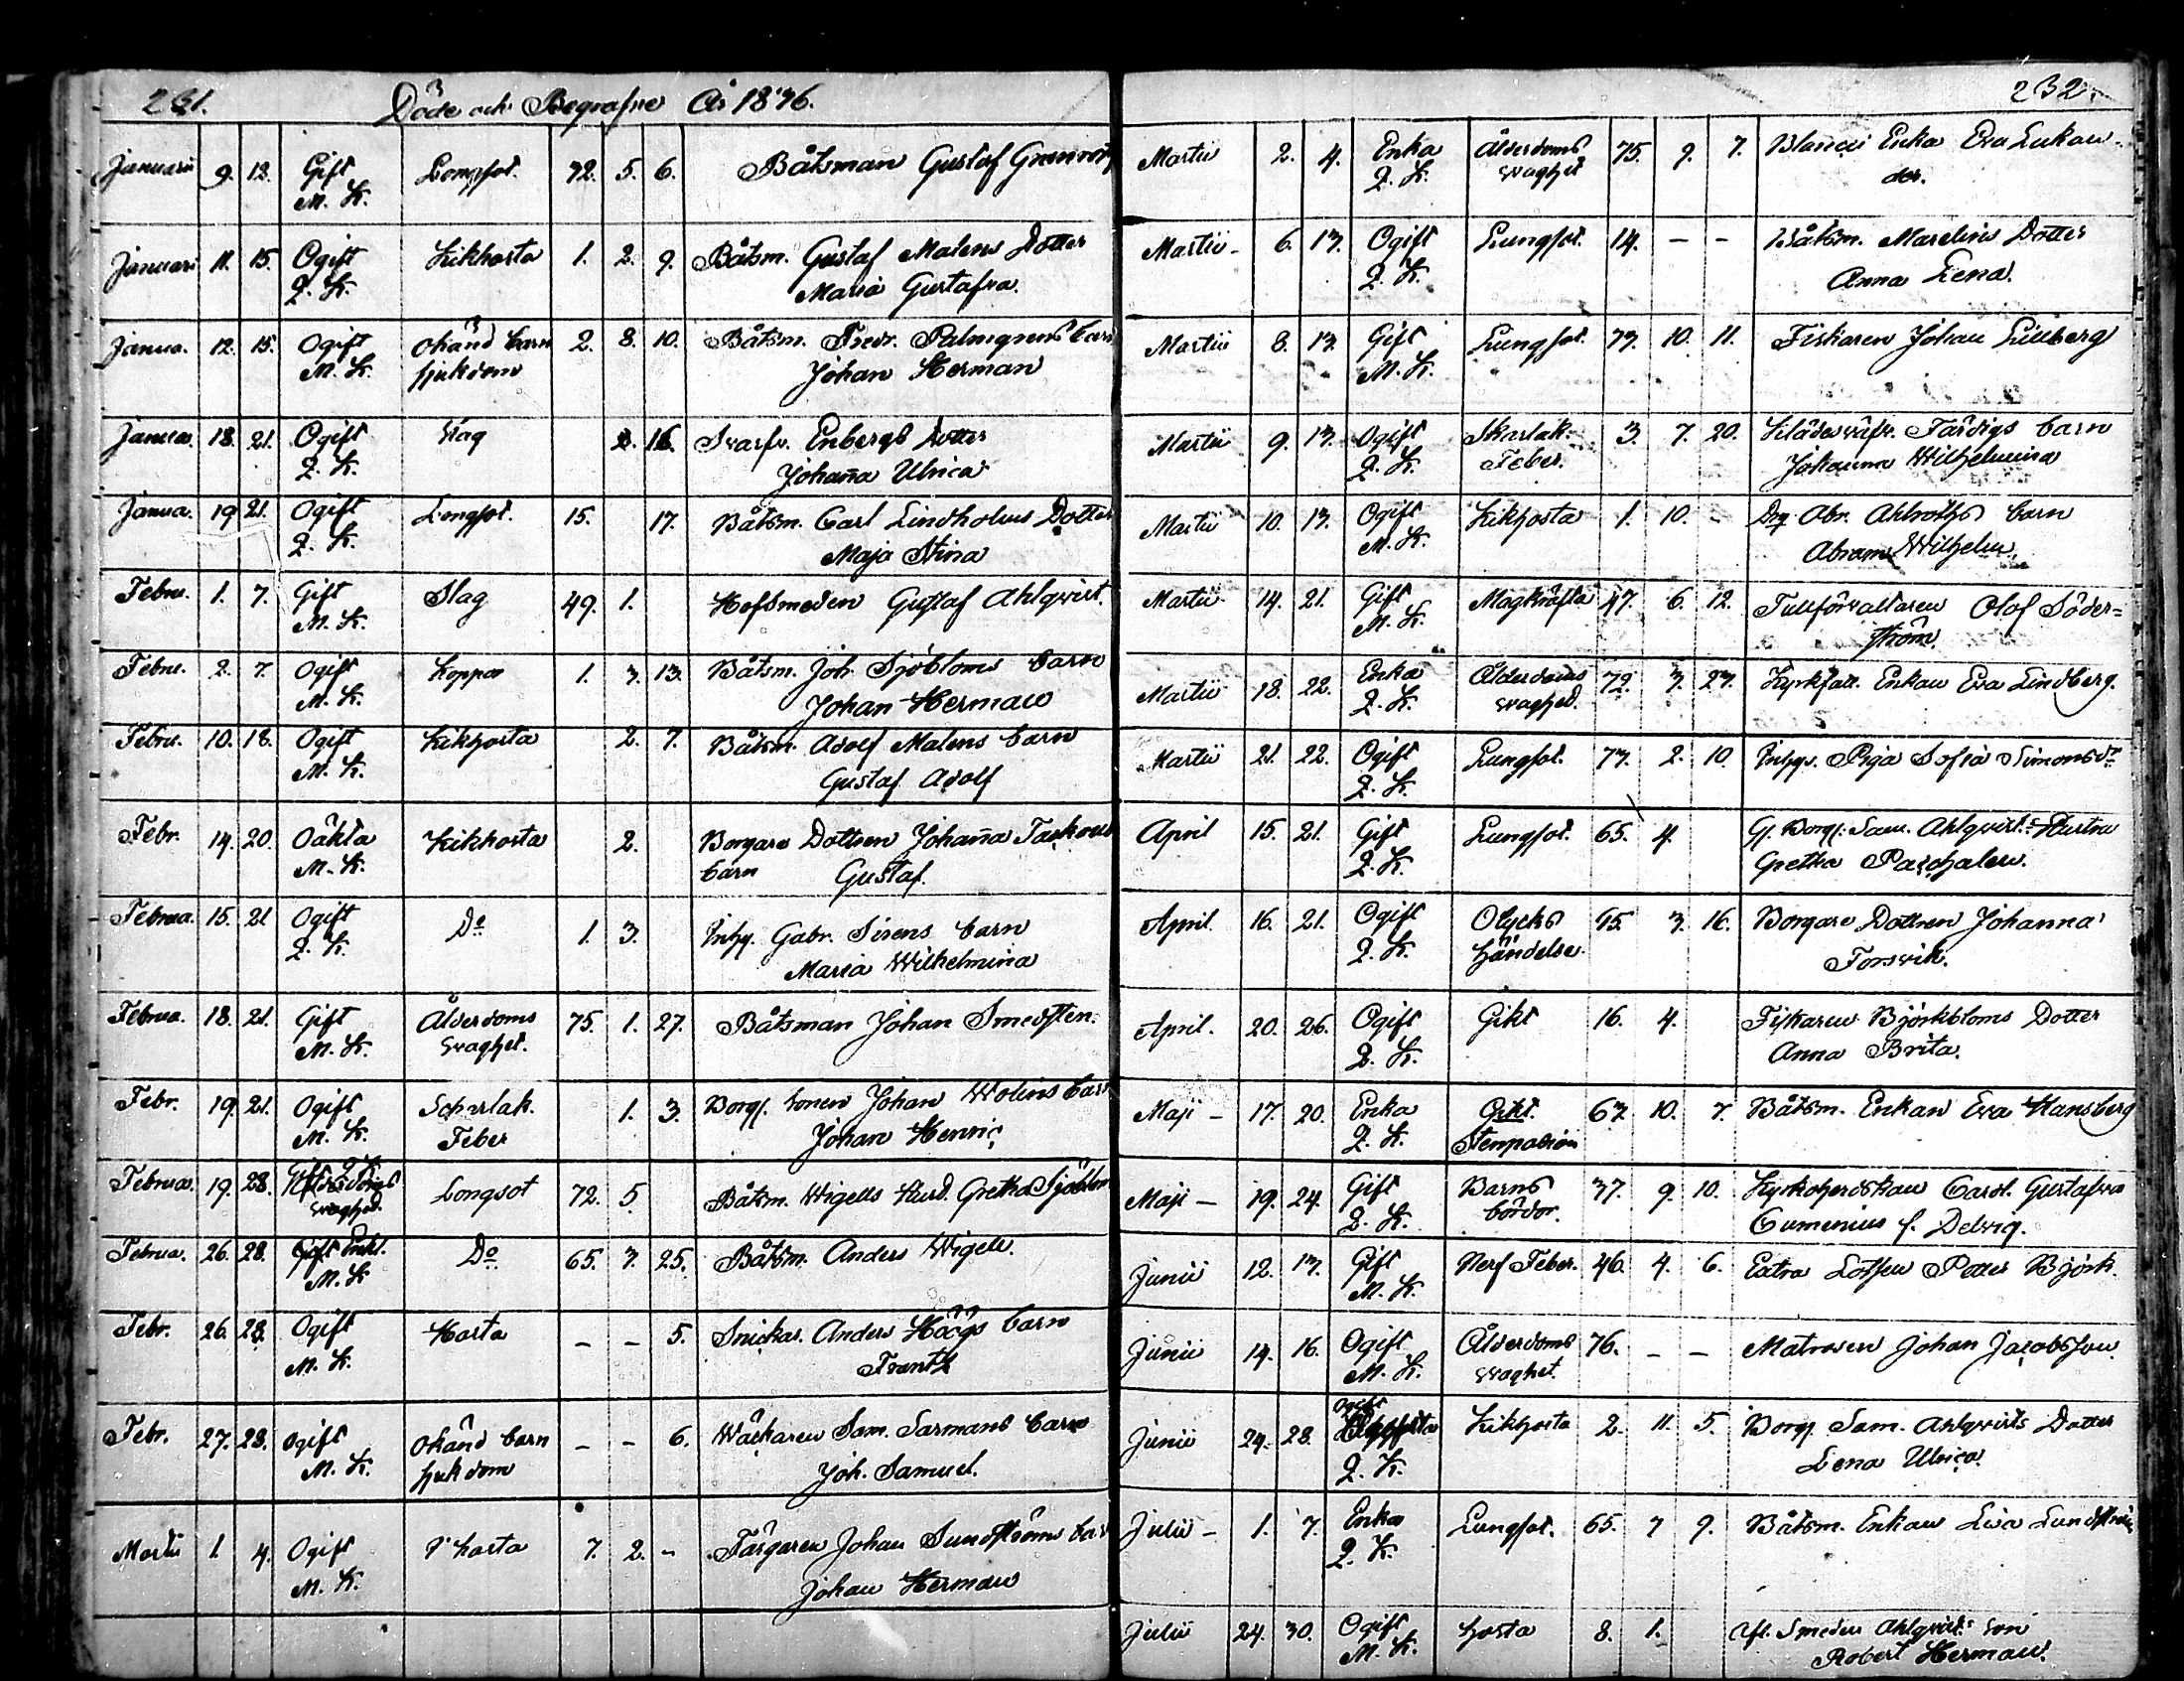 231.
Döde och Begrafne År 1836.
Januarii 9. 12. Gift Lungsot. 72. 5. 6. Båtsman Gustaf
M. K.
Januari 11. 15. Ogift Kikhosta 1. 2. 9. Båtsm. Gustaf Malens Dotter
Q. K. Maria Gustafva.
Janua. 12. 15. Ogift okänd barn 2. 8. 10. Båtsm. Fredr. Palmgrens barn
M. K. sjukdom Johan Herman
Janua. 18. 21. Ogift Slag 2. 16. Svarfv. Enbergs Dotter
Q. K. Johaña Ulrica
Janua. 19 21. Ogift Longsot. 15. 17. Båtsm. Carl Lindholms Dotter
Q. K. Maja Stina
Febru. 1. 7. Gift Slag 49. 1. Hofsmeden Gustaf Ahlqvist.
M. K.
Febru. 2. 7. Ogift Koppor 1. 3. 13. Båtsm. Joh. Sjöbloms barn
M. K. Johan Herman
Febru. 10. 18. Ogift Kikhosta 2. 7. Båtsm. Adolf Malens barn
M. K. Gustaf Adolf
Febr. 14. 20. Oäkta Kikhosta 2. Borgare Dottren Johaña
M. K. barn Gustaf.
Februa. 15. 21 Ogift Do 1. 3. Inhy. Gabr. Sirens barn
Q. K. Maria Wilhelmina
Februa. 18. 21. Gift Ålderdoms 75. 1. 27. Båtsman Johan Smedsten.
M. K. svaghet.
Febr. 19. 21. Ogift Scharlak. 1. 3. Borg. sonen Johan Wolins barn
M. K. Feber Johan Henric
Februa. 19. 28. Gift Q K Longsot 72. 5 Båtsm. Wigells Hust. Gretha Sjöblom
Ålderdoms
svaghed.
Februa. 26. 28. Gift Enkl. Do 65. 3. 25. Båtsm. Anders Wigell.
M. K
Febr. 26. 28. Ogift Hosta – – 5. Snickar. Anders Höögs barn
M. K. Frantz
Febr. 27. 28. Ogift okänd barn – – 6. Wäckaren Sam. Sarmans barn
M. K. sjukdom Joh. Samuel.
Marti 1. 4. Ogift hosta 7. 2. – Färgaren Johan Sundströms barn
M. K. Johan Herman
232.
Martii 2. 4. Enka Ålderdoms 75. 9. 7. Enka Eva Lukan-
Q. K. svaghet der.
Martii – 6. 13. Ogift Lungsot. 14. – – Båtsm. Marelins Dotter
Q. K. Anna Lena.
Martii 8. 13. Gift Lungsot. 73. 10. 11. Fiskaren Johan Lillberg
M. K.
Martii 9. 13. Ogift Skarlak. 3. 7. 20. Klädesväfv. Färdigs barn
Q. K. Feber. Johanna Wilhelmina
Martii 10. 13. Ogift Kikhosta 1. 10. – Drg. Abr. Ahlroths barn
M. K. Abram Wilhelm.
Martii 14. 21. Gift Magkräfta 47. 6. 12. Tullförvaltaren Olof Söder=
M. K. ström.
Martii 18. 22. Enka Ålderdoms 72. 3. 23. Enkan Eva Lindberg.
Q. K. svaghed.
Martii 21. 22. Ogift Lungsot. 73. 2. 10. Inhys. Piga Sofia Simonsdr
Q. K.
April 15. 21. Gift Lungsot. 65. 4. Borg. Sam. Ahlqvists Hustru
Q. K. Gretha Paschalen.
April 16. 21. Ogift Olycks 45. 3. 16. Borgare Dottren Johanna
Q. K. händelse. Forsvik.
April. 20. 26. Ogift Gikt 16. 4. Fiskaren Björkbloms Dotter
Q. K. Anna Brita.
Maji – 17. 20. Enka Gikt. 67. 10. 7. Båtsm. Enkan Eva Hansberg
Q. K. Stenpasion
Maji – 19. 24. Gift Barns 37. 9. 10. Kyrkoherdskan Carol. Gustafva
Q. K. bördor. Cumenius f. Delvig.
Junii 12. 13. Gift Nerf Feber. 46. 4. 6. Extra Lotsen Petter Björk.
M. K.
Junii 14. 16. Ogift Ålderdoms 76. – – Matrosen Johan Jacobsson
M. K. svaghet.
Junii 24. 28. Ogift Kikhosta 2. 11. 5. Borg. Sam. Ahlqvists Dotter
Q. K. Lena Ulrica.
Julii – 1. 7. Enka Lungsot. 65. 7 9. Båtsm. Enkan Lisa Lundström
Q. K.
Julii 24. 30. Ogift hosta 8. 1. Afl. Smeden Ahlqvists Son
M. K. Robert Herman.